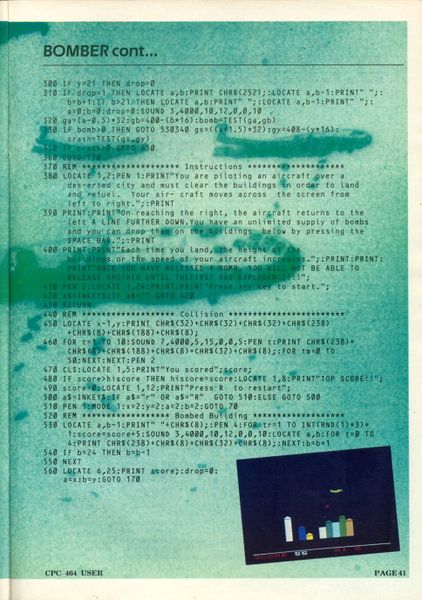 BOMBER cont...
300 IF y=21 THEN drop=0
310 IF drop=1 THEN LOCATE a,b:PRINT CHR$(252);:LOCATE a,b-1:PRINT" ";:
b=b+1:IF b>21 THEN LOCATE a,b:PRINT" ";:LOCATE a,b-1:PRINT" ";:
a=0:b=0:drop=0:SOUND 3,4000,10,12,0,0,10
320 ga=(a-0.5)*32:gb=400-(b*16):bomb=TEST(ga,gb)
330 IF bomb>0 THEN GOTO 530340 gx=((x+1.5)*32):gy=408-(y*16):
crash=TEST(gx,gy)
350 IF crash>0 GOTO 450
360 GOTO 170
370 REM ******************** Instructions ********************
380 LOCATE 1,2:PEN 1:PRINT"You are piloting an aircraft over a
des-erted city and must clear the buildings in order to land
and refuel. Your air- craft moves across the screen from
left to right.";:PRINT
390 PRINT:PRINT"On reaching the right, the aircraft returns to the
left A LINE FURTHER DOWN.You have an unlimited supply of bombs
and you can drop them on the buildings below by pressing the
SPACE BAR.";:PRINT
400 PRINT:PRINT"Each time you land, the height of the
buildings or the speed of your aircraft increases.";:PRINT:PRINT:
PRINT"ONCE YOU HAVE RELEASED A BOMB, YOU WILL NOT BE ABLE TO
RELEASE ANOTHER UNTIL THEFIRST HAS EXPLODED
410 PEN 2:LOCATE 1,24:PRINT"Press any key to start.";
420 a$=INKEY$:IF a$="" GOTO 420
430 RETURN
440 REM ******************** Collision ********************
450 LOCATE x-1,y:PRINT CHR$(32)+CHR$(32)+CHR$(32)+CHR$(238)
+CHR$(8)+CHR$(188)+CHR$(8);
460 FOR t=1 TO 10:SOUND 7,4000,5,15,0,0,5:PEN t:PRINT CHR$(238)+
CHR$(8)+CHR$(188)+CHR$(8)+CHR$(32)+CHR$(8);:FOR tm=0 TO
50:NEXT:NEXT:PEN 2
470 CLS:LOCATE 1,5:PRINT"You scored";score;
480 IF score>hiscore THEN hiscore=score:LOCATE 1,8:PRINT"TOP SCORE!!";
490 score=0:LOCATE 1,12:PRINT"Press R to restart";
500 a$=INKEY$:IF a$="r" OR a$="R" GOTO 510:ELSE GOTO 500
510 PEN 1:MODE 1:x=2:y=2:a=2:b=2:GOTO 70
520 REM ****************** Bombed Building *******************
530 LOCATE a,b-1:PRINT" "+CHR$(8);:PEN 4:FOR tr=1 TO INT(RND(1)*3)+
1:score=score+5:SOUND 3,4000,10,12,0,0,10:LOCATE a,b:FOR t=0 TO
4:PRINT CHR$(238)+CHR$(8)+CHR$(32)+CHR$(8);:NEXT:b=b+1
540 IF b=24 THEN b=b-1
550 NEXT
560 LOCATE 6,25:PRINT score;:drop=0:
a=x:b=y:GOTO 170
SCORE 55 HI 0
CPC 464 USER
PAGE 41